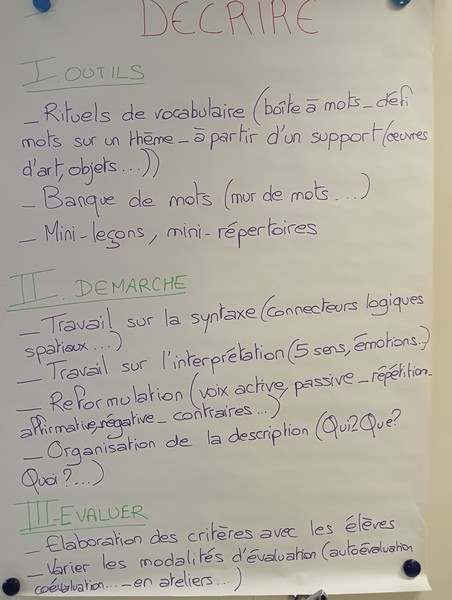 DECRIRE
I. OUTILS
_ Rituels de vocabulaire (boîte à mots _ défi
mots sur un thème _ à partir d'un support (œuvres
d'art, objets...))
_ Banque de mots (mur de mots ...)
_ Mini-leçons, mini-répertoires
II. DEMARCHE
_ Travail sur la syntaxe (connecteurs logiques
spatiaux ...)
_ Travail sur l'interprétation (5 sens, émotions..)
_ Reformulation (voix active, passive _ répétition_
affirmative, négative _ contraires...)
_ Organisation de la description (Qui? Que?
Quoi?...)
III-EVALUER
_ Elaboration des critères avec les élèves
_ Varier les modalités d'évaluation (autoévaluation
coévaluation... _ en ateliers...)